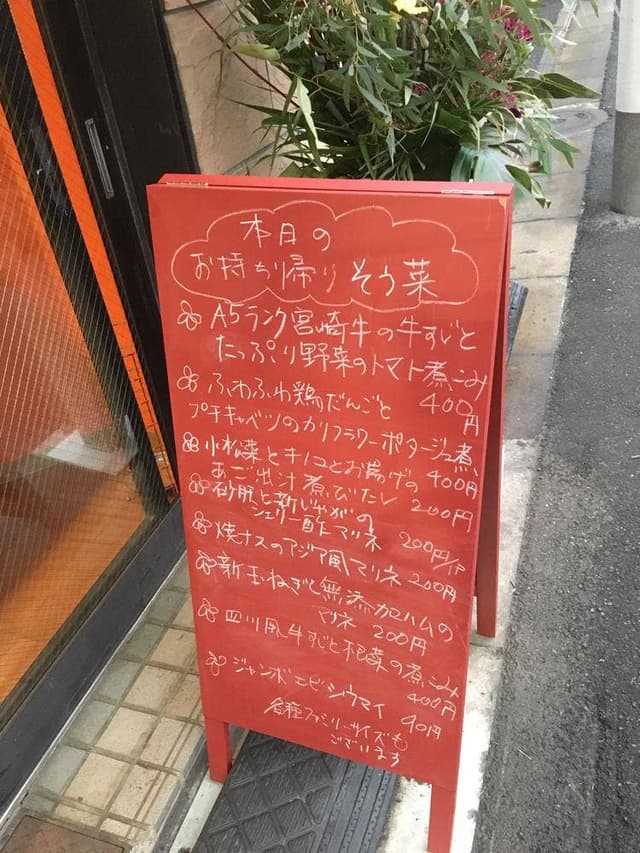 本日の
お持ち帰りそう菜
A5ランク宮崎牛の牛すじと
たっぷり野菜のトマト煮こみ
400円
ふわふわ鶏だんごと
プチキャベツのカリフラワーポタージュ煮
400円
小松菜とキノコとお揚げの
あご出汁煮びたし
200円
砂肝と新じゃがの
シェリー酢マリネ
200円/1P
焼ナスのアジア風マリネ 200円
新玉ねぎと無添加ハムの
マリネ 200円
四川風牛すじと根菜の煮こみ
400円
ジャンボエビシウマイ 90円
各種ファミリーサイズも
ございます